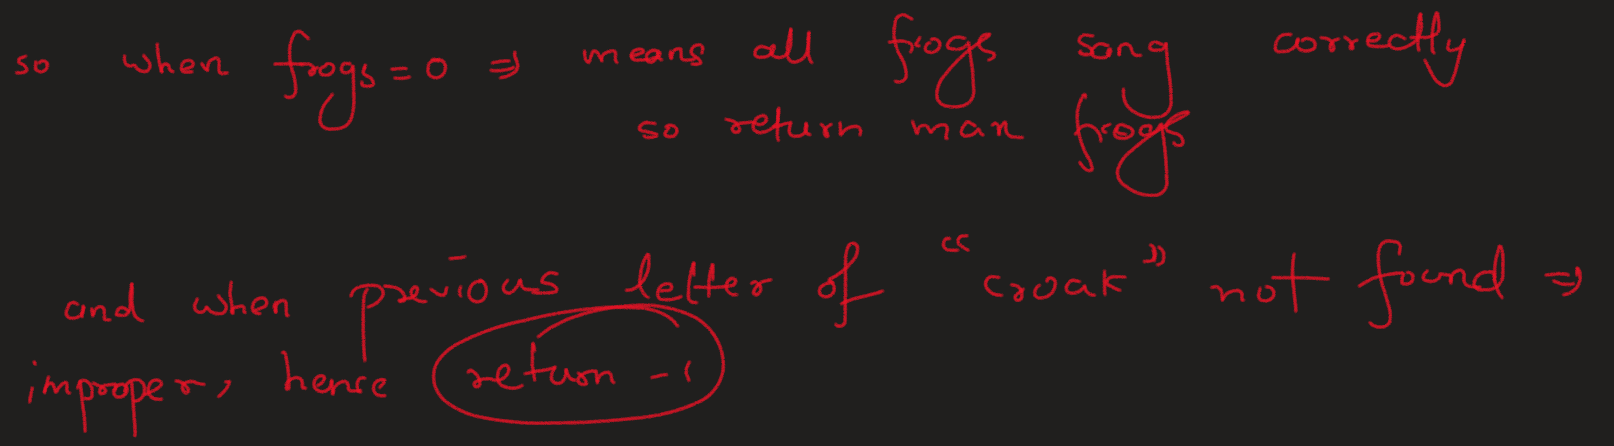 so when frogs = 0 ⇒ means all frogs sang correctly
so return max frogs
and when previous letter of "croak" not found ⇒
improper, hence return -1